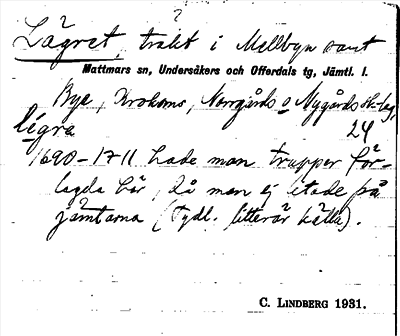 Lägret, trakt i Mellbyn samt
Mattmars sn, Undersåkers och Offerdals tg, Jämtl. l.
Bye, Krokoms, Norrgårds o Nygårds sk.lag,
lḗgra 24
1690-1711 hade man trupper för-
lagda här, då man ej litade på
jämtarna (Tydl. litterär källa).
C. LINDBERG 1931.